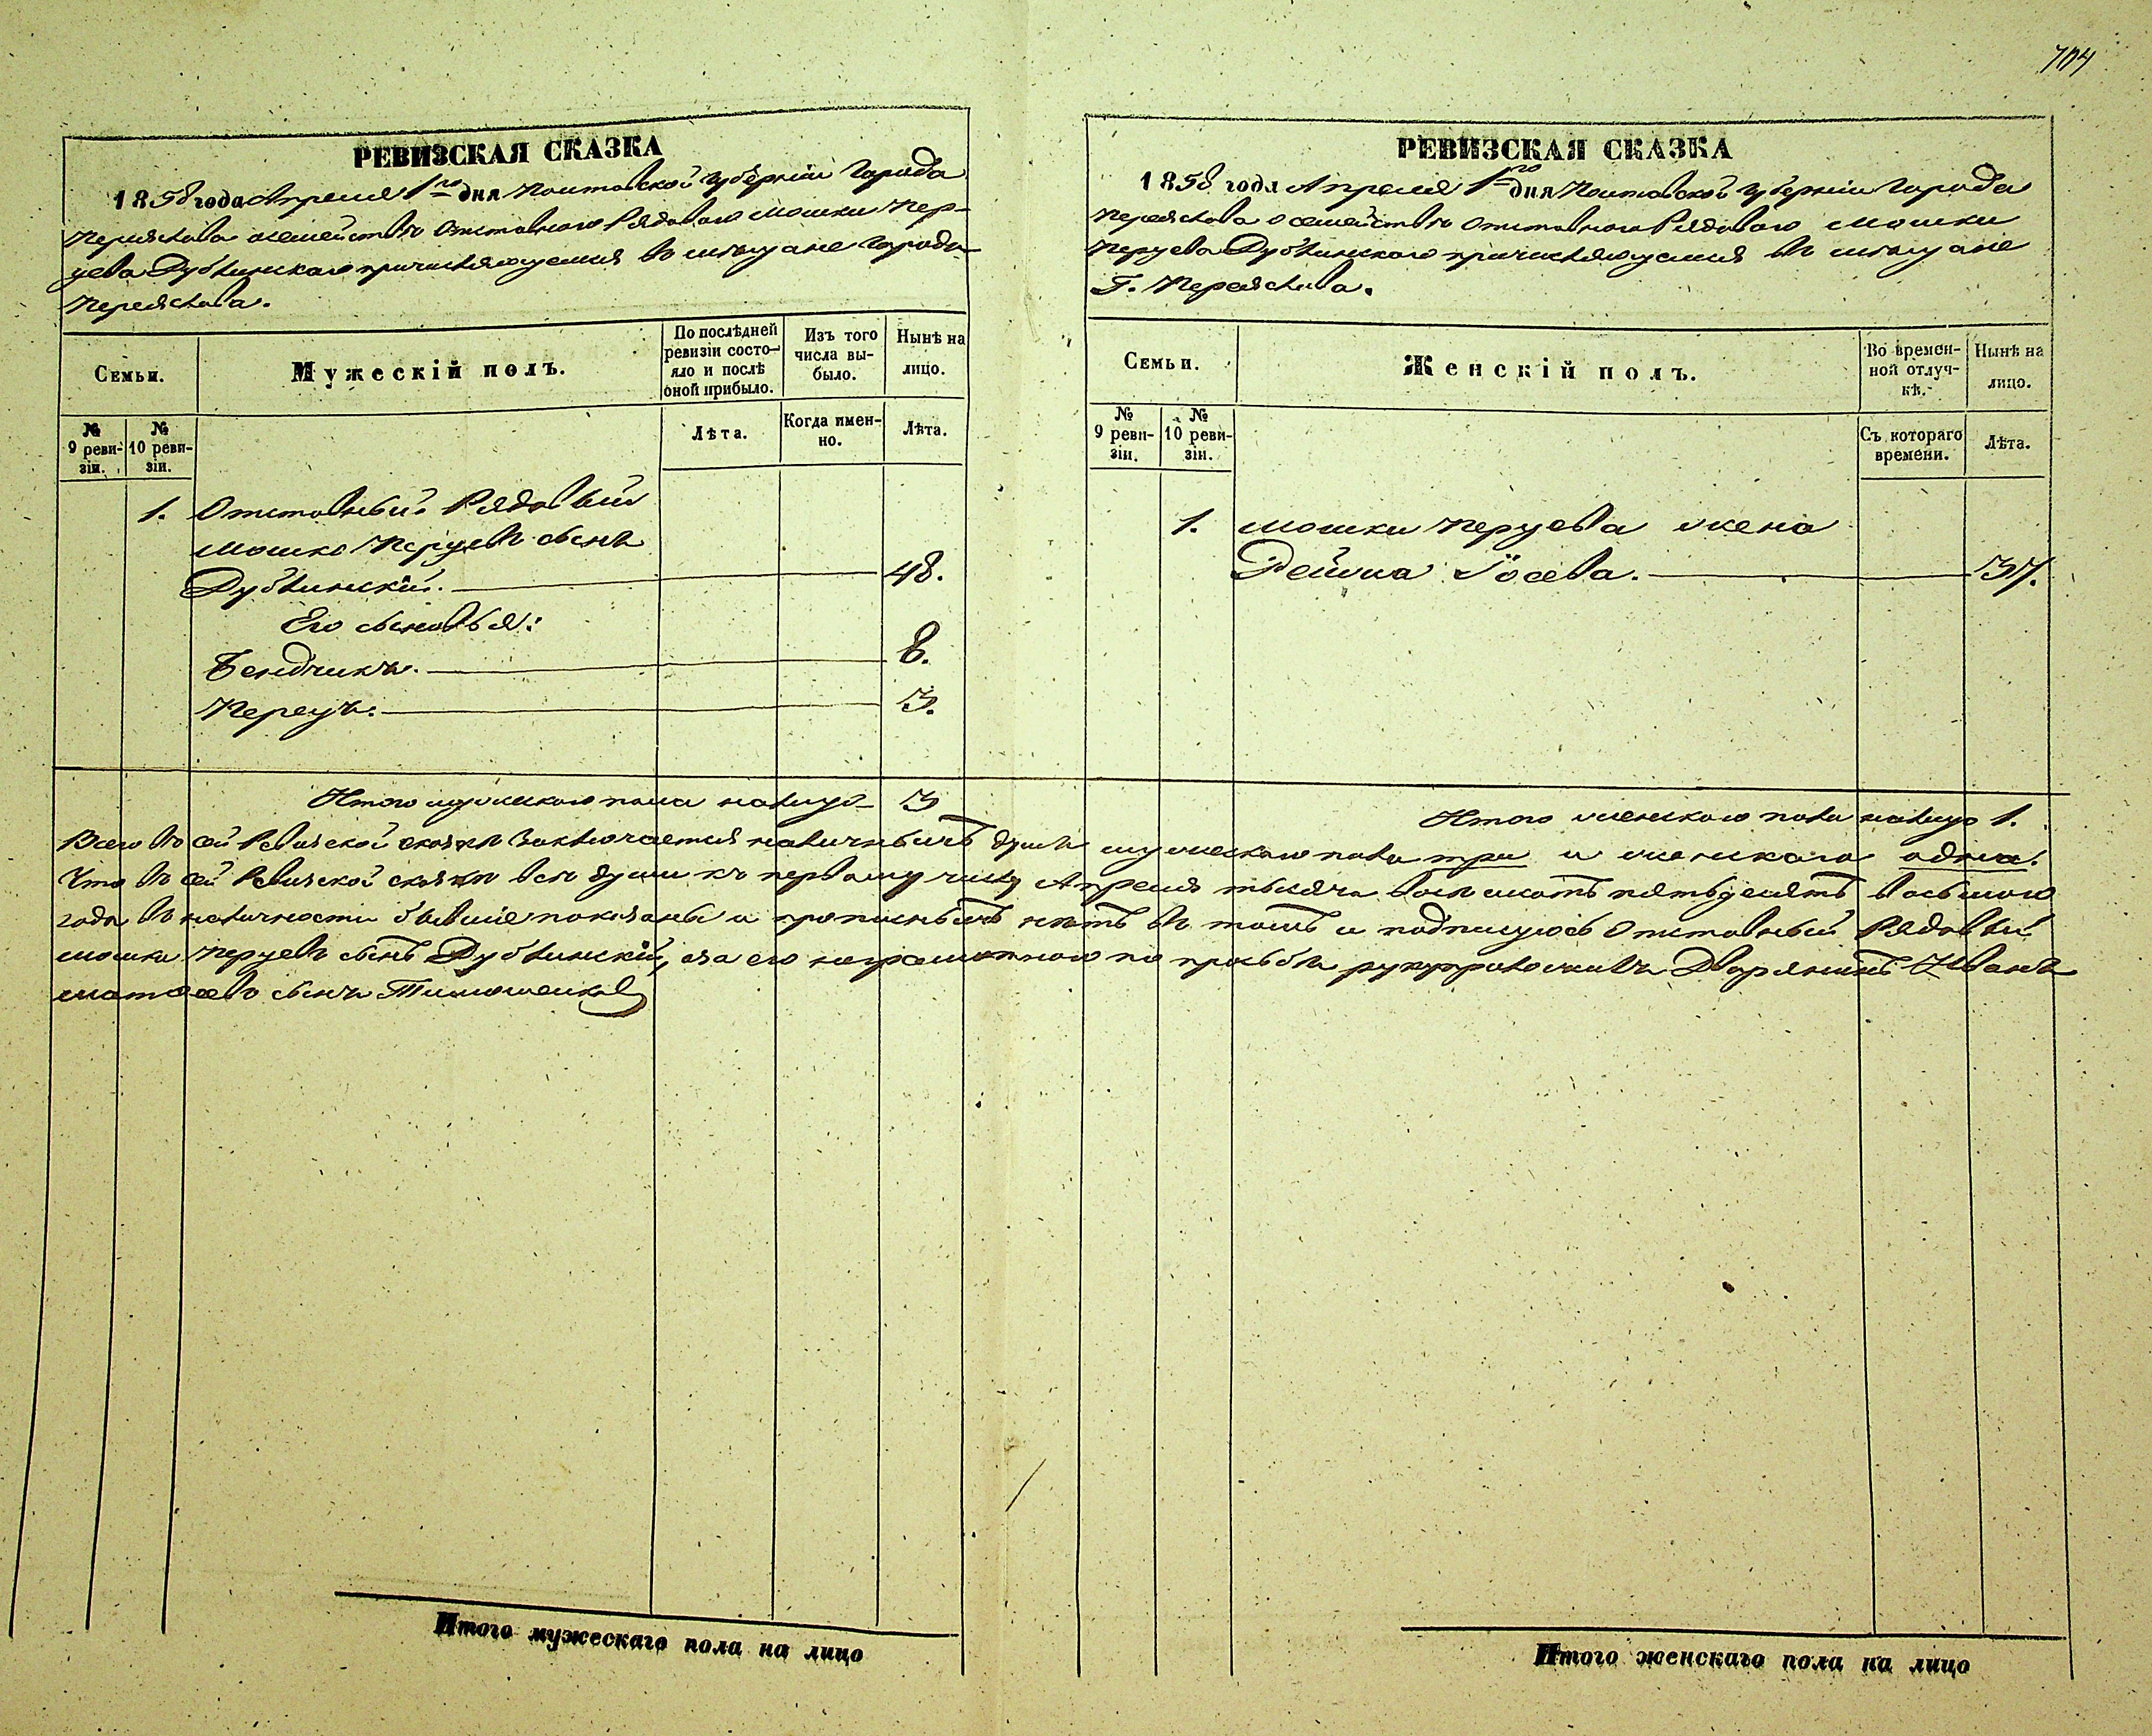 704
РЕВИЗСКАЯ СКАЗКА
1858 года Апреля 1го дня Полтавской Губерніи Города
Переяслава о семействѣ Отставного Рядоваго Мошки Пер-
цева Дублинскаго причисляющемся въ мѣщане города
Переяслава.
Семьи.
Мужескій полъ.
По послѣдней
ревизіи состо-
яло и послѣ
оной прибыло.
Изъ того
числа вы-
было.
Нынѣ на
лицо.
№
9 реви-
зіи.
№
10 реви-
зіи.
Лѣта.
Когда имен-
но.
Лѣта.
1. Отставный Рядовый
Мошко Перцевъ сынъ
Дублинскій. 48.
Его сыновья:
Бендчикъ. 8.
Перецъ. 3.
Итого мужескаго пола налицо 3
РЕВИЗСКАЯ СКАЗКА
1858 года Апреля 1го дня Полтавской Губерніи Города
Переяслава о семействѣ Отставного Рядоваго Мошки
Перцева Дублинскаго причисляющемся въ мѣщане
Г. Переяслава.
Семьи.
Женскій полъ.
Во времен-
ной отлуч-
кѣ.
Нынѣ на
лицо.
№
9 реви-
зіи.
№
10 реви-
зіи.
Съ котораго
времени.
Лѣта.
1. Мошки Перцева жена
Рейза Іосева. 37.
Итого женскаго пола налицо 1.
Всего въ сей Ревизской сказкѣ заключается наличныхъ душъ мужескаго пола три и женскаго одна.
Что въ сей Ревизской сказкѣ всѣ души къ первому числу Апреля тысяча восемсотъ пятьдесятъ восьмого
года въ наличности бывшіе показаны и прописныхъ нѣтъ въ томъ и подпишуюсь Отставный Рядовый
Мошка Перцевъ сынъ Дублинскій, а за его неграмотного по прозьбѣ рукуприложилъ Дворянинъ Иванъ
Матвеевъ сынъ Тимошенков
Итого мужескаго пола на лицо
Итого женскаго пола на лицо